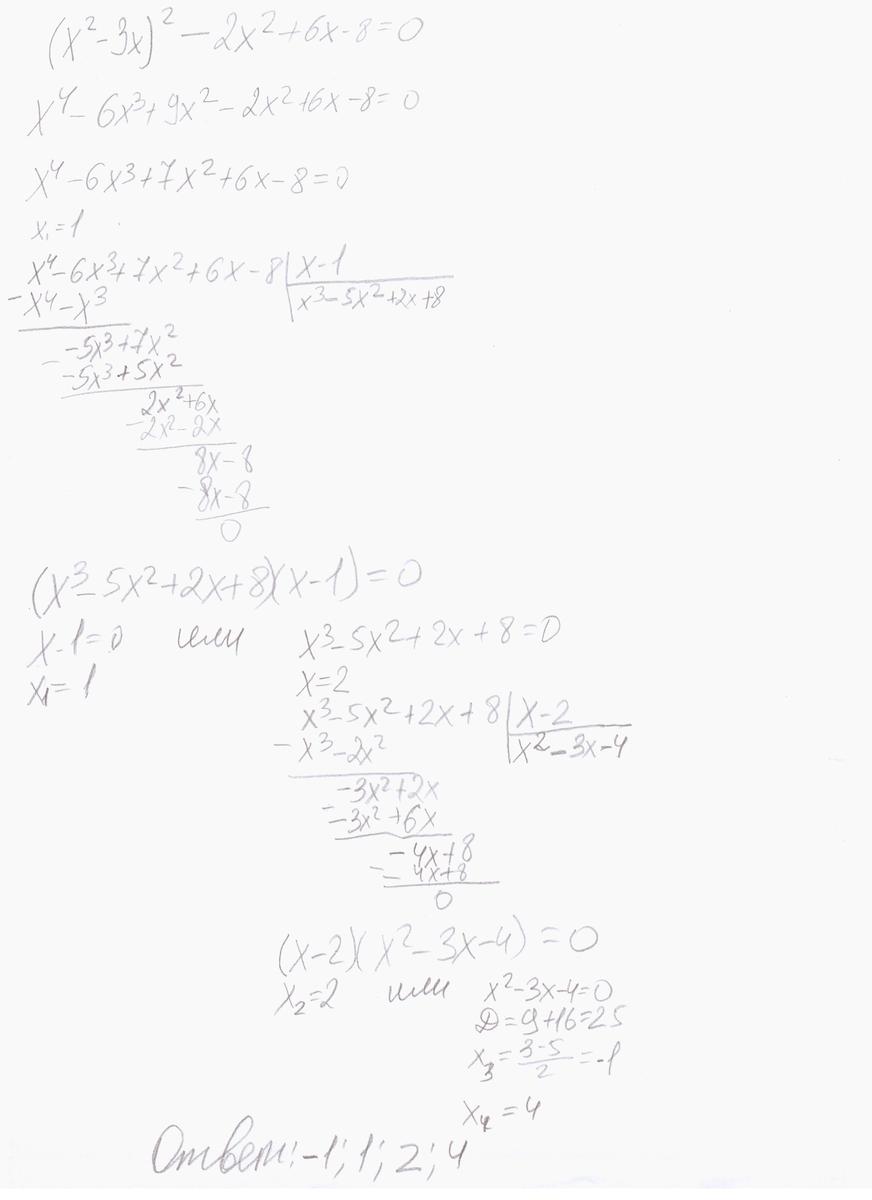 (x²-3x)² - 2x²+6x-8=0
x⁴-6x³+9x²-2x²+6x-8=0
x⁴-6x³+7x²+6x-8=0
x₁=1
x⁴-6x³+7x²+6x-8 | x-1
-x⁴-x³ | x³-5x²+2x+8
-5x³+7x²
- -5x³+5x²
2x²+6x
-2x²-2x
8x-8
-8x-8
0
(x³-5x²+2x+8)(x-1)=0
x-1=0 или x³-5x²+2x+8=0
x₁=1 x=2
x³-5x²+2x+8 | x-2
-x³-2x² | x²-3x-4
-3x²+2x
- -3x²+6x
-4x+8
- -4x+8
0
(x-2)(x²-3x-4)=0
x₂=2 или x²-3x-4=0
D=9+16=25
x₃=(3-5)/2=-1
x₄=4
Ответ: -1; 1; 2; 4